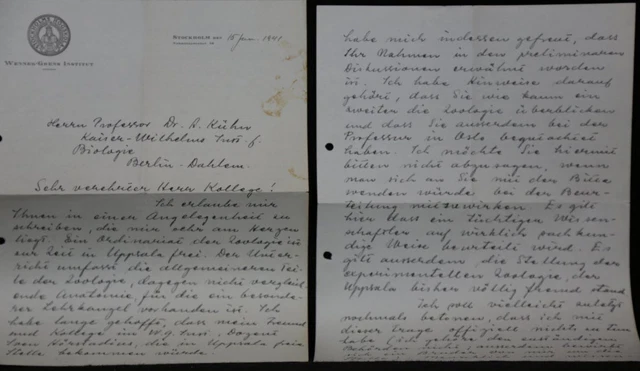 WENNER-GRENS INSTITUT
STOCKHOLM den 15 Jan. 1941
Herrn Professor Dr. A. Kühn
Kaiser-Wilhelms Inst f.
Biologie
Berlin-Dahlem.
Sehr verehrter Herr Kollege!
Ich erlaube mir
Ihnen in einer Angelegenheit zu
schreiben, die mir sehr am Herzen
liegt. Ein Ordinariat der Zoologie ist
zur Zeit in Uppsala frei. Der Unter-
richt umfasst die allgemeineren Tei-
le der Zoologie, dagegen nicht vergleich-
ende Anatomie, für die ein besonde-
rer Lehrkanzel vorhanden ist. Ich
habe lange gehofft, dass mein Freund
und Kollege im W.G. Inst., Dozent
Sven Hörstadius, die in Uppsala freie
Stelle bekommen würde.
habe mich indessen gefreut, dass
Ihr Nahmen in den preliminären
Diskussionen erwähnt worden
ist. Ich habe Hinweise darauf
gehört, dass Sie wie kaum ein
zweiter die Zoologie überblicken
und dass Sie ausserdem bei der
Professur in Oslo begutachtet
haben. Ich möchte Sie hiermit
bitten nicht abzusagen, wenn
man sich an Sie mit der Bitte
wenden würde bei der Beur-
teilung mitzuwirken. Es gilt
hier dass ein tüchtiger Wissen-
schaftler auf wirklich sachkun-
dige Weise beurteilt wird. Es
gilt ausserdem, die Stellung der
experimentellen Zoologie, der
Uppsala bisher völlig fremd stand.
Ich soll vielleicht zuletzt
nochmals betonen, dass ich mit
dieser Frage offiziell nichts zu tun
habe (ich gehöre den zuständigen
Behörden nicht